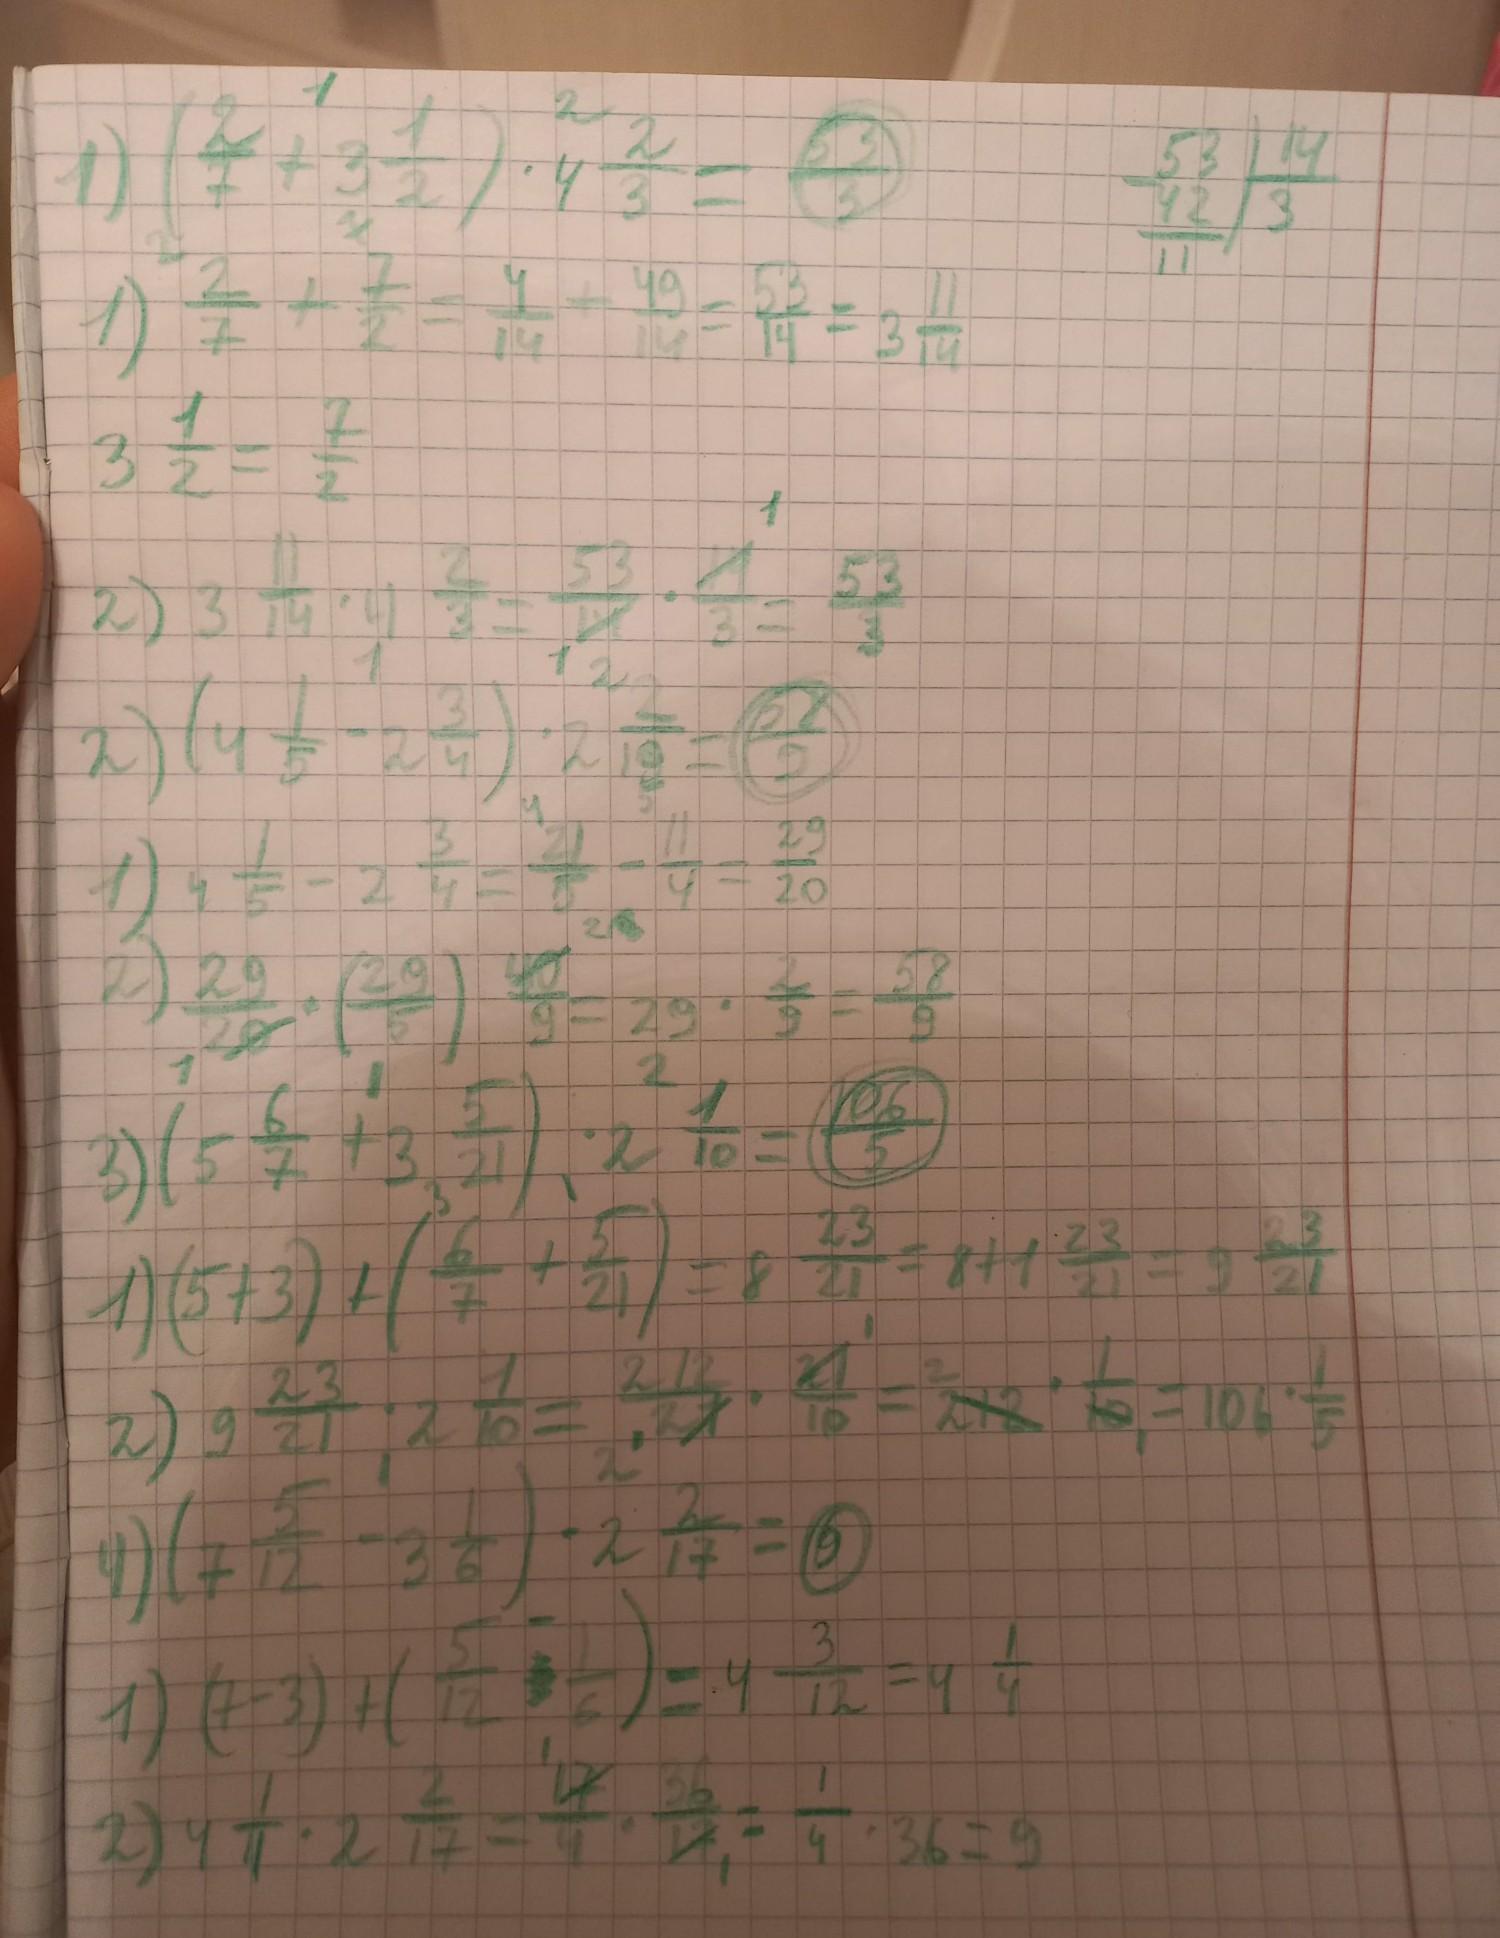 1) (2/7 + 3 1/2) · 4 2/3 = 53/3
53 | 14
42 | 3
11
1) 2/7 + 7/2 = 4/14 + 49/14 = 53/14 = 3 11/14
3 1/2 = 7/2
2) 3 11/14 · 4 2/3 = 53/14 · 14/3 = 53/3
2) (4 1/5 - 2 3/4) · 2 2/10 = 58/9
1) 4 1/5 - 2 3/4 = 21/5 - 11/4 = 29/20
2) 29/20 · (29/5) 40/9 = 29 · 2/9 = 58/9
3) (5 6/7 + 3 5/21) · 2 1/10 = 106/5
1) (5+3) + (6/7 + 5/21) = 8 23/21 = 8+1 23/21 = 9 23/21
2) 9 23/21 · 2 1/10 = 212/21 · 21/10 = 212 · 1/10 = 106 · 1/5
4) (7 5/12 - 3 1/6) · 2 2/17 = 9
1) (7-3) + (5/12 - 1/6) = 4 3/12 = 4 1/4
2) 4 1/4 · 2 2/17 = 17/4 · 36/17 = 1/4 · 36 = 9